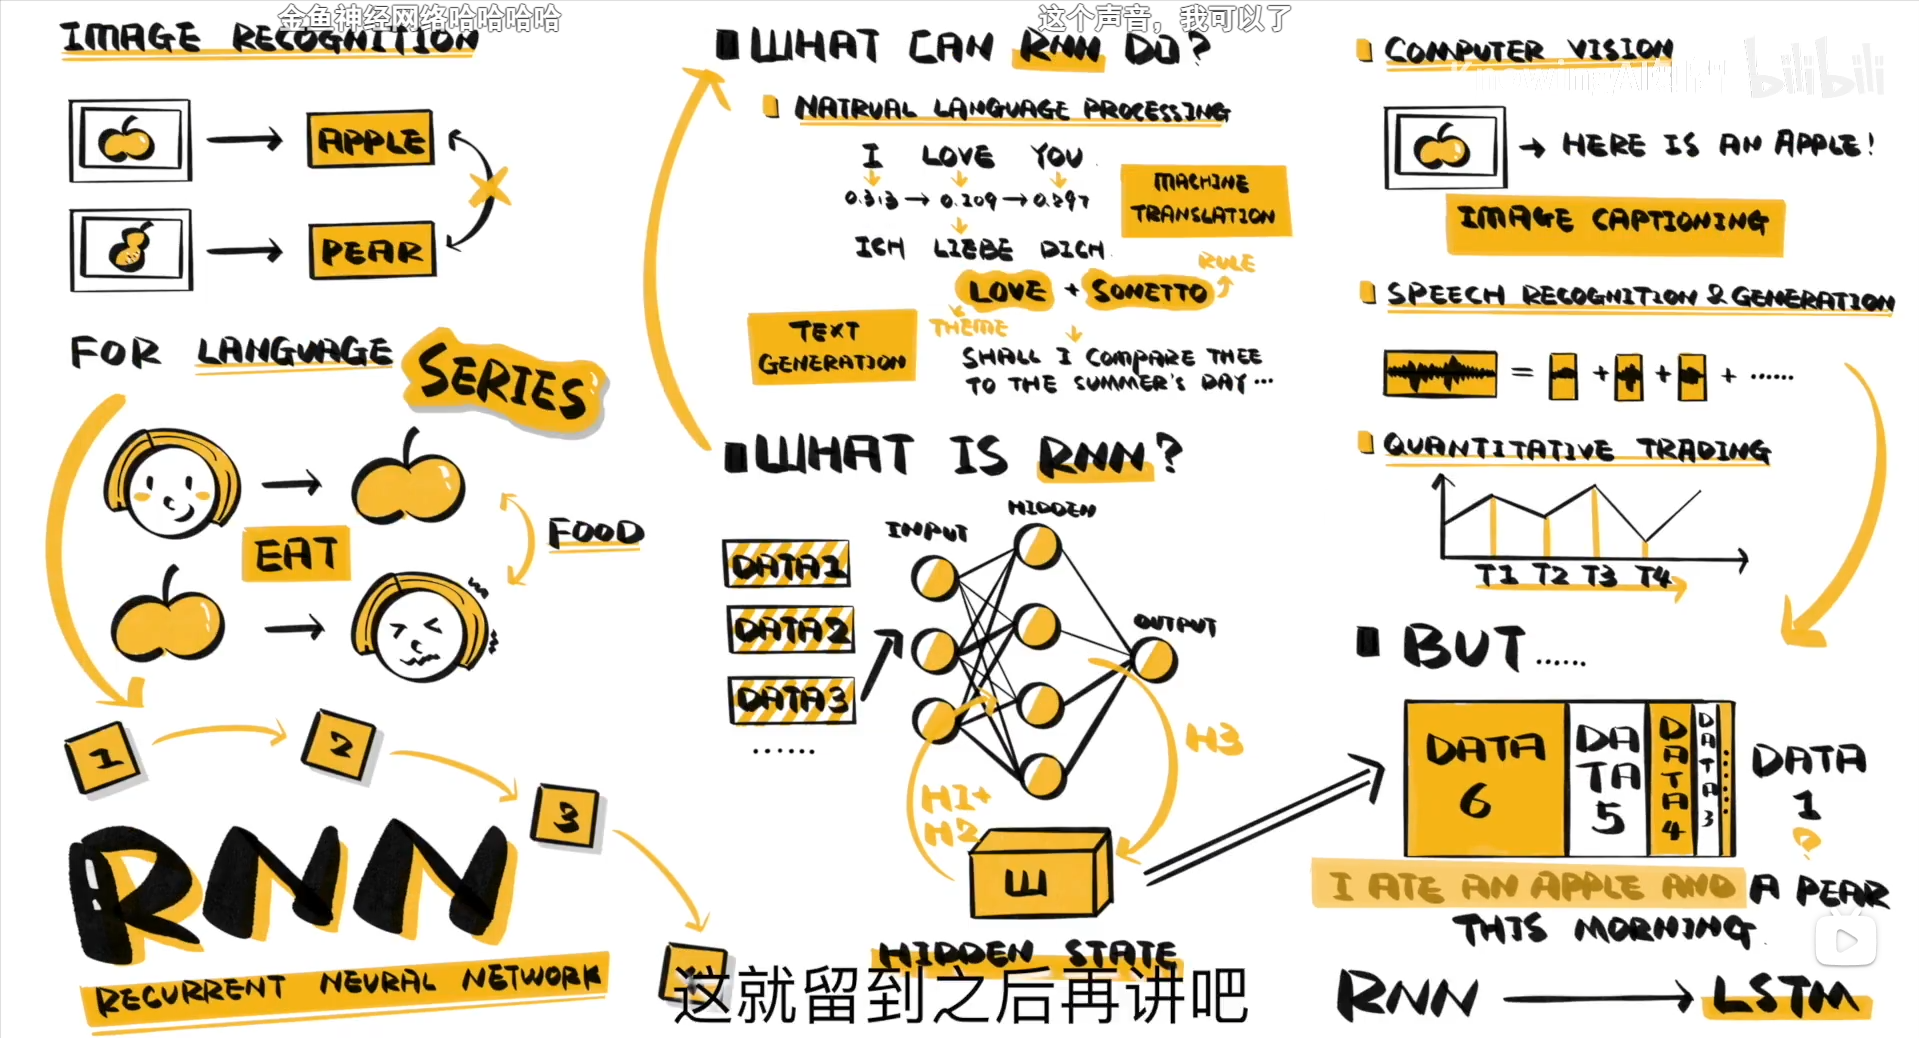 金鱼神经网络哈哈哈哈
这个声音，我可以了
IMAGE RECOGNITION
APPLE
PEAR
FOR LANGUAGE
SERIES
EAT
FOOD
1
2
3
RNN
RECURRENT NEURAL NETWORK
WHAT CAN RNN DO?
NATRUAL LANGUAGE PROCESSING
I LOVE YOU
0.313 → 0.209 → 0.897
ICH LIEBE DICH
MACHINE
TRANSLATION
RULE
LOVE + SONETTO
THEME
TEXT
GENERATION
SHALL I COMPARE THEE
TO THE SUMMER'S DAY...
WHAT IS RNN?
INPUT
HIDDEN
OUTPUT
DATA1
DATA2
DATA3
......
H1+
H2
H3
W
HIDDEN STATE
COMPUTER VISION
bilibili
HERE IS AN APPLE!
IMAGE CAPTIONING
SPEECH RECOGNITION & GENERATION
= + + + ......
QUANTITATIVE TRADING
T1 T2 T3 T4
BUT......
DATA
6
DA
TA
5
DATA4
DATA3
......
DATA
1
?
I ATE AN APPLE AND A PEAR
THIS MORNING
RNN → LSTM
这就留到之后再讲吧